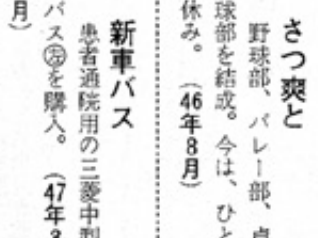 さつ爽と
野球部、バレー部、卓
球部を結成。今は、ひと
休み。（46年8月）
新車バス
患者通院用の三菱中型
バス㊧を購入。（47年3
月）